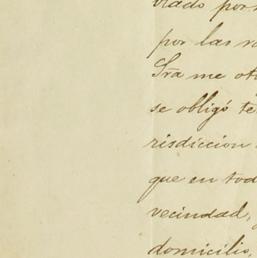 por las
me
se obligó
risdiccion
que en tod
vecindad,
domicilio,